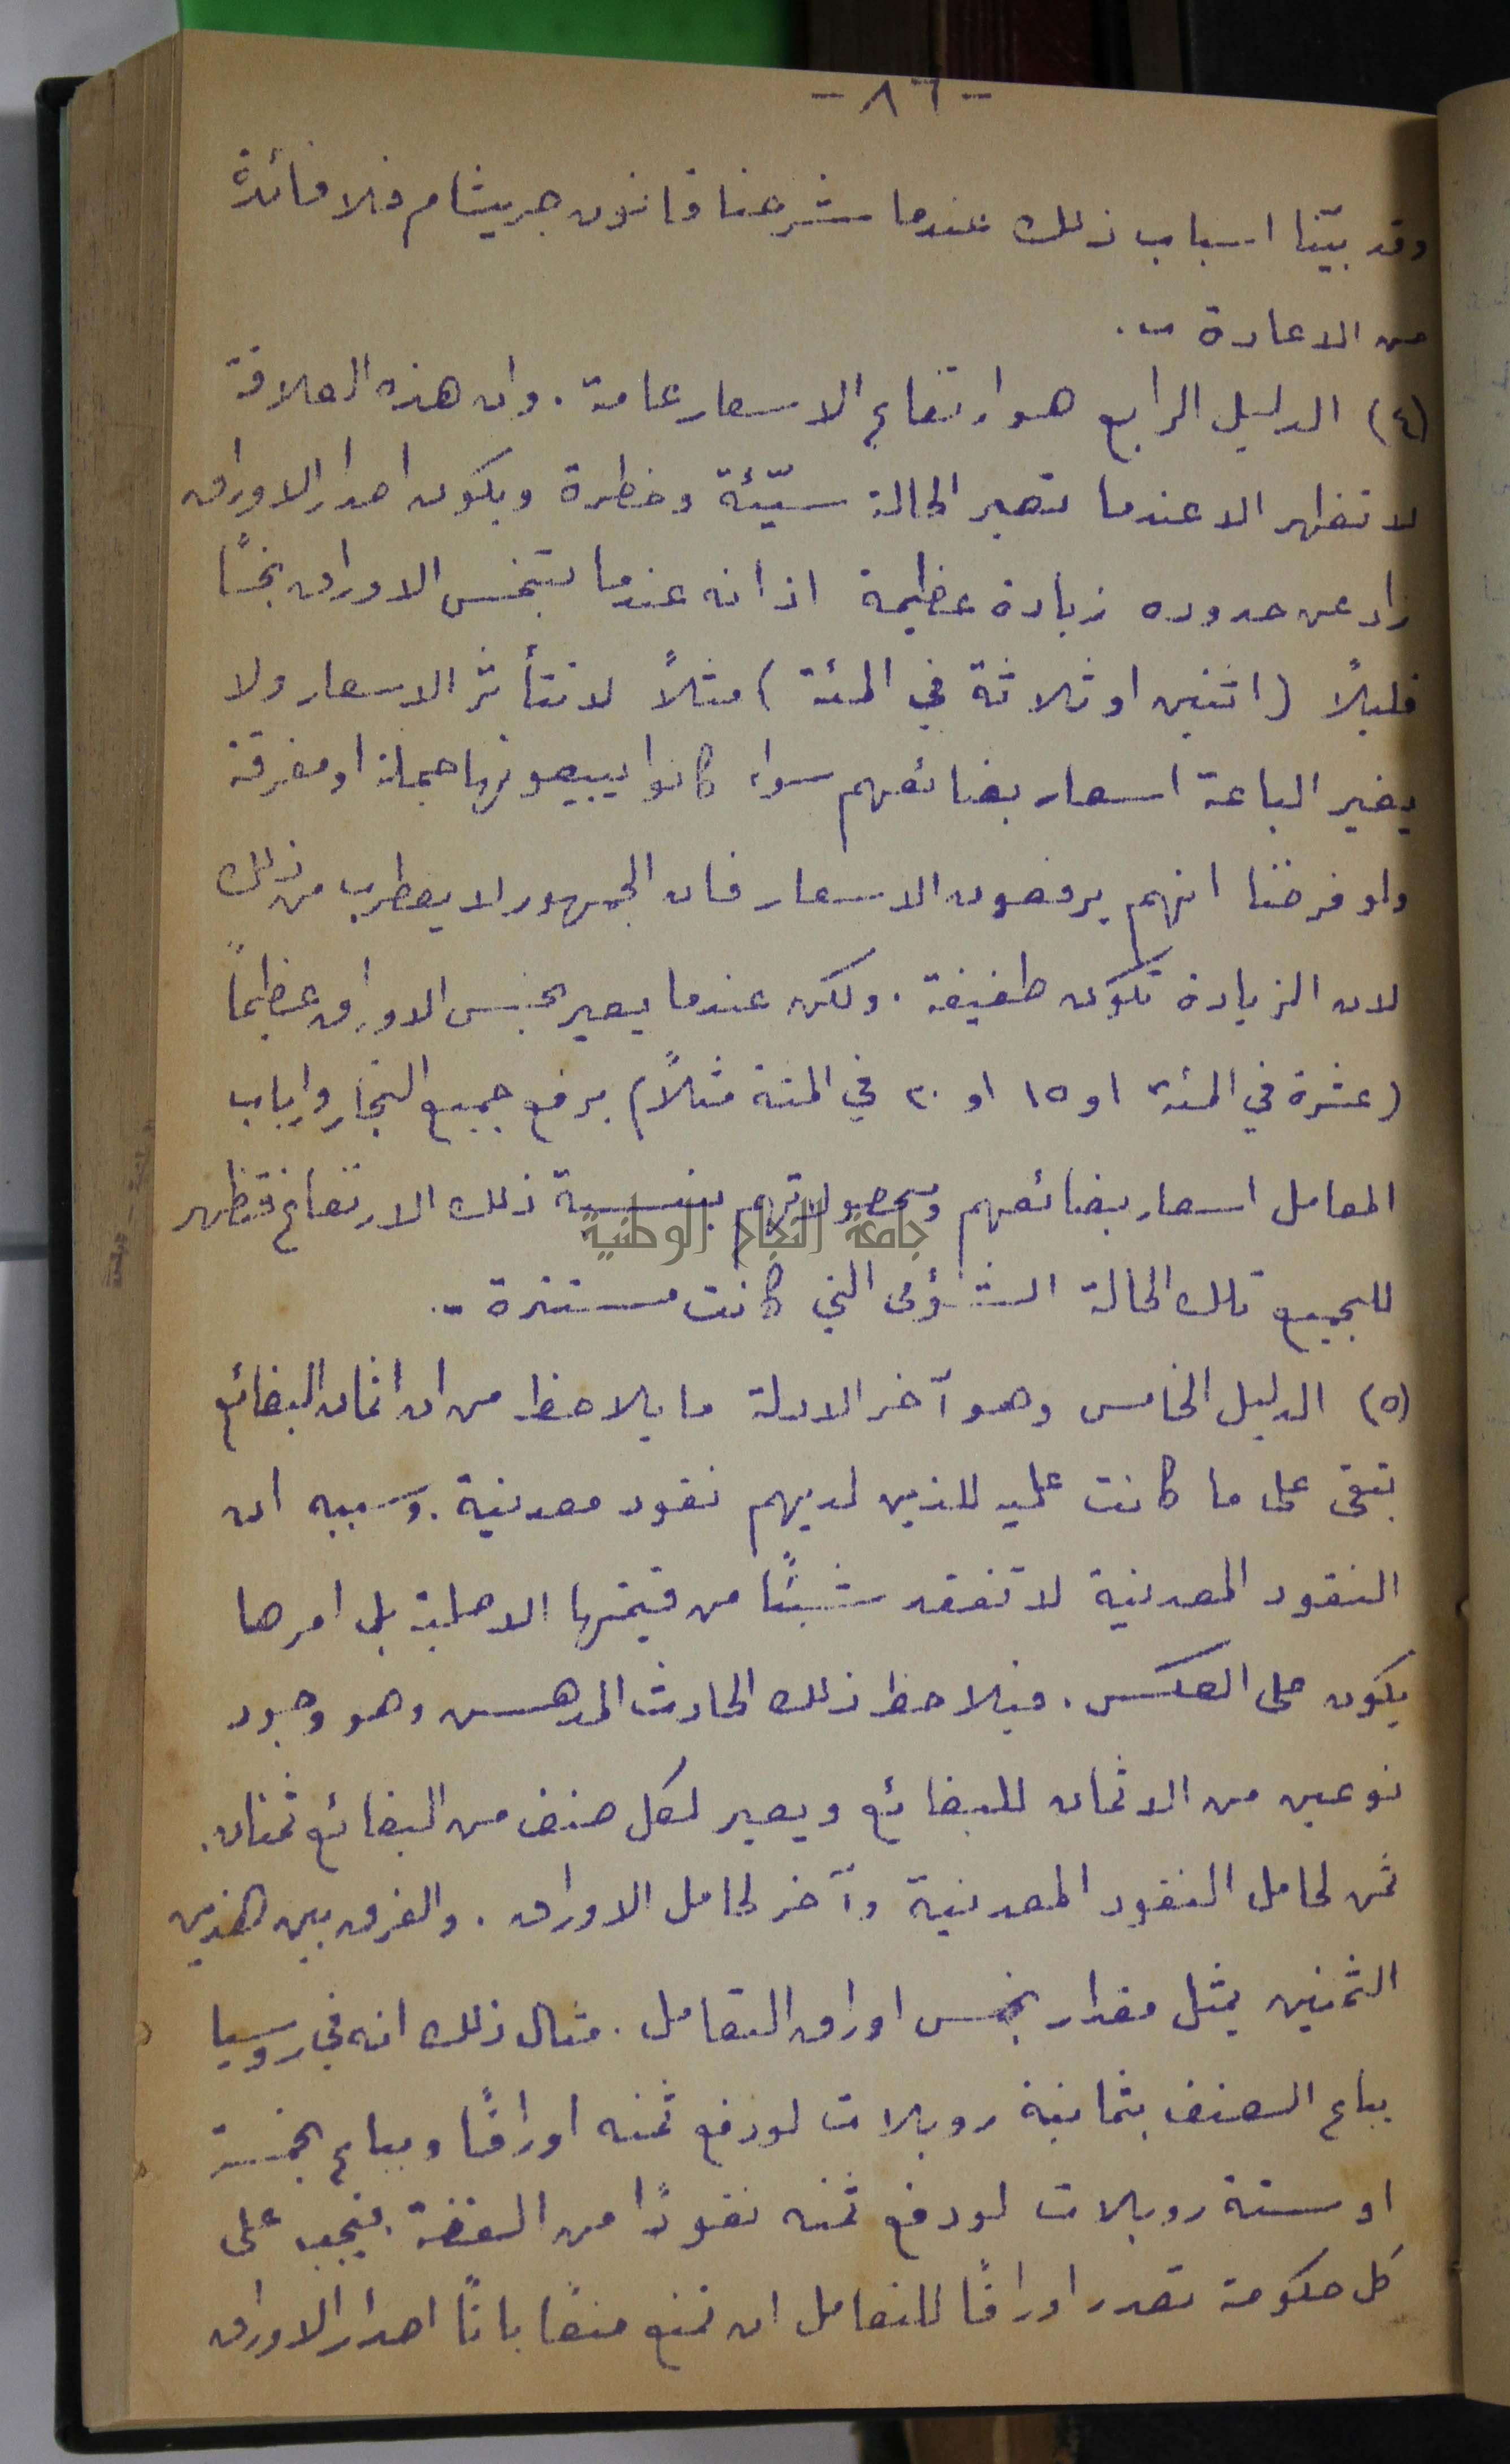 -٨٦-
وقد بيّنا اسباب ذلك عندما شرحنا قانون جريشام فلا فائدة
من الاعادة -.
(٤) الدليل الرابع هو ارتفاع الاسعار عامة . وان هذه العلاقة
لا تظهر الا عندما تصير الحالة سيّئة وخطرة ويكون اصدار الاوراق
زاد عن حدوده زيادة عظيمة اذ انه عندما تبخس الاوراق بخسًا
قليلاً (اثنين او ثلاثة في المئة) مثلاً لا تتأثر الاسعار ولا
يغير الباعة اسعار بضائعهم سواء كانوا يبيعونها جملة او مفرقة
ولو فرضنا انهم يرفعون الاسعار فان الجمهور لا يضطرب من ذلك
لان الزيادة تكون طفيفة . ولكن عندما يصير بخس الاوراق عظيماً
(عشرة في المئة او ١٥ او ٢٠ في المئة مثلاً) يرفع جميع التجار وارباب
المعامل اسعار بضائعهم ومحصولاتهم بنسبة ذلك الارتفاع فتظهر
جامعة النجاح الوطنية
للجميع تلك الحالة الشؤمى التي كانت مستترة -.
(٥) الدليل الخامس وهو آخر الادلة ما يلاحظ من ان اثمان البضائع
تبقى على ما كانت عليه للذين لديهم نقود معدنية . وسببه ان
النقود المعدنية لا تفقد شيئًا من قيمتها الاصلية بل امرها
يكون على العكس . فيلاحظ ذلك الحادث المدهش وهو وجود
نوعين من الاثمان للبضائع ويصير لكل صنف من البضائع ثمنان .
ثمن لحامل النقود المعدنية وآخر لحامل الاوراق . والفرق بين هذين
الثمنين يمثل مقدار بخس اوراق التعامل . مثال ذلك انه في روسيا
يباع الصنف بثمانية روبلات لو دفع ثمنه اوراقًا ويباع بخمسة
او ستة روبلات لو دفع ثمنه نقودًا من الفضة . فيجب على
كل حكومة تصدر اوراقًا للتعامل ان تمنع منعًا باتًا اصدار الاوراق